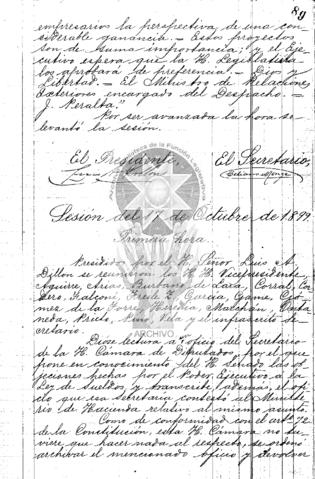 89
empresarios la perspectiva de una con
siderable ganancia. — Estos proyectos
son de suma importancia; y el Eje-
cutivo espera que la H. Legislatura
los aprobará de preferencia. — Dios y
Libertad. — El Ministro de Relaciones
Exteriores encargado del Despacho. —
J. Peralta."
Por ser avanzada la hora se
levantó la sesión.
El Presidente, El Secretario,
Sesión del 17 de Octubre de 1899.
Primera hora.
Presidido por el H. Señor Luis A.
Dillon se reunieron los H. H. Vicepresidente,
Aguirre, Arias, Burbano de Lara, Corral, Cor-
dero, Falconí, García, Game, Gó-
mez de la Torre, Marchán, Casta-
neda, Prieto, Pino, Vela y el infrascrito Se-
cretario.
Diose lectura a oficio del Secretario
de la H. Cámara de Diputados, por el que
pone en conocimiento del H. Senado las ob
jecciones hechas por el Poder Ejecutivo a la
Ley de sueldos y transcribe además, el ofi
cio que esa Secretaría contestó al Ministe
rio de Hacienda relativo al mismo asunto.
Como de conformidad con el artº 72
de la Constitución, esta H. Cámara no tu
viere que hacer nada al respecto, se ordenó
archivar el mencionado oficio y devolver
ARCHIVO